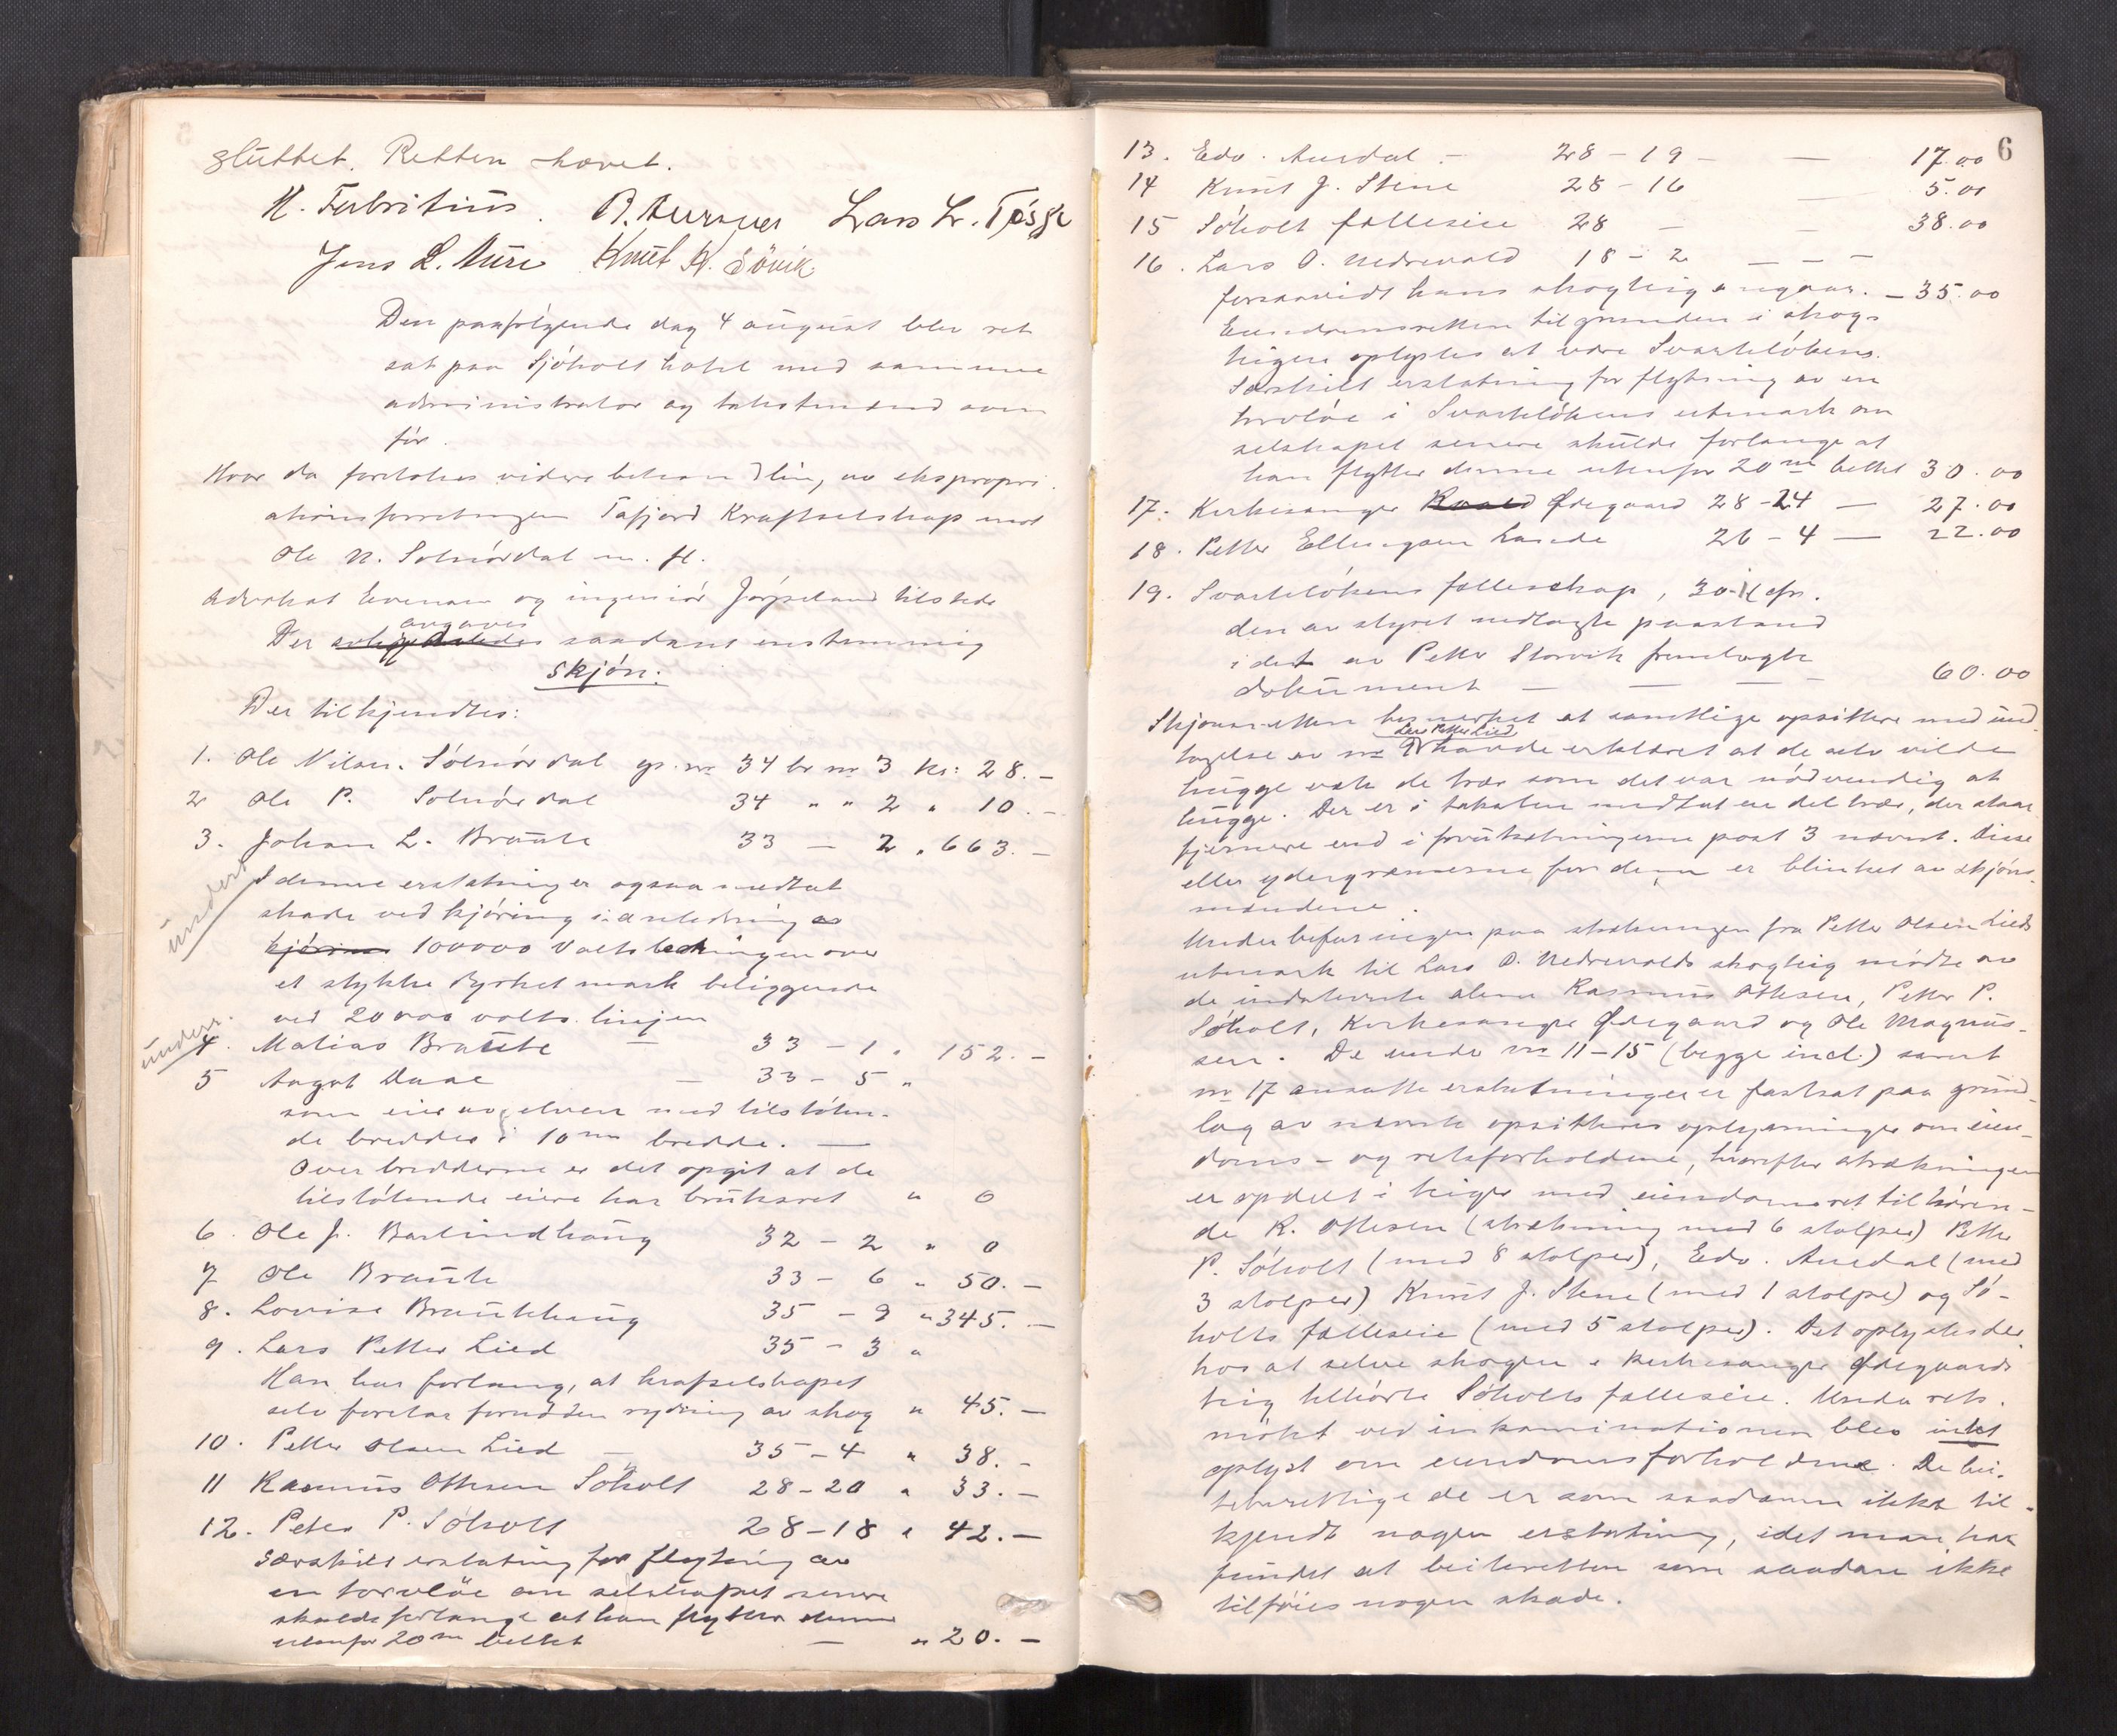 sluttet. Retten hævet.
H. Fabritius. B. Aursnes Lars L. Tøsse
Jens L. Aure Knut K. Søvik
Den paafølgende dag 4 august blev ret
sat paa Sjøholt hotel med samme
administrator og takstmænd som
før.
Hvor da foretokes videre behandling av ekspropri-
ationsforretningen Tafjord Kraftselskap mot
Ole N. Solnørdal m. fl.
Advokat Evensen og ingeniør Jøpeland tilstede
avgaves
Der saadant enstemmig
Skjøn:
Der tilkjendtes:
1. Ole Nilsen Sólnórdal gr. nr 34 br nr 3 kr: 28.-
2 Ole P. Solnórdal 34 " " 2 " 10.-
3. Johan L. Braute 33 - 2 " 663.-
I denne erstatning er ogsaa medtat
skade ved kjøring i anledning av
kjøring 100000 Volts ledningen over
et stykke dyrket mark beliggende
ved 20000 volts linjen
undert
4. Matias Braute - 33 - 1 " 152.-
underr.
5 Aagot Daae - 33 - 5 "
som eier av elven med tilstøten-
de bredder i 10 m bredde. -
Over bredderne er det opgit at de
tilstøtende eiere har bruksret " 0
6. Ole J. Barlindhaug 32 - 2 " 0
7 Ole Braute 33 - 6 " 50.-
8. Lovise Brautehaug 35 - 9 " 345.-
9. Lars Petter Lied 35 - 3 "
Han har forlang, at krafselskapet
selv foretar fornødden rydning av skog " 45.-
10. Petter Olsen Lied - 35 - 4 " 38.-
11 Rasmus Ottesen Sóholt 28 - 20 " 33.-
12. Peter P. Sóholt 28 - 18 " 42.-
Særskilt erstatning for flytning av
en torvløe om selskapet senere
skulde forlange at han flytter denne
utenfor 20 m beltet - " 20.-
6
13. Edv. Auedal - 28 - 19 - - 17.00
14 Knut J. Stene 28 - 16 - 5.00
15 Sóholt fælleseie 28 - - 38.00
16. Lars O. Nedrevold 18 - 2 - - -
forsaavidt hans skogteig angaar. - 35.00
Eiendomsretten til grunden i skog-
teigen oplystes at være Svartelókens.
Særskilt erstatning for flytning av en
torvløe i Svartelókens utmark om
selskapet senere skulde forlange at
han flytter denne utenfor 20 m beltet 30.00
17. Kirkesanger Ødegaard 28 - 24 - 27.00
18. Petter Ellingsen Lande 26 - 4 - 22.00
19. Svartelókens fælleskap, 30-1 cfr.
den av styret nedlagte paastand
i det av Petter Storvik fremlagte
dokument - - - - 60.00
Skjønsretten bemerket at samtlige opsittere med und-
Lars Petter Lied
tagelse av nr 9 havde erklæret at de selv vilde
hugge væk de træ som det var nødvendig at
hugge. Der er i taksten medtat en del træ, der staar
fjernere end i forutsetningerne post 3 nævnt. Disse
eller ydergrænserne for dem er blinket av skjøns-
mændene.
Under befaringen paa strekningen fra Petter Olsen Lieds
utmark til Lars O. Nedrevolds skogteig mødte av
de indstevnte alene Rasmus Ottesen, Petter P.
Sóholt, Kirkesanger Ødegaard og Ole Magnus-
sen. De under nr 11-15 (begge incl.) samt
nr 17 ansatte erstatninger er fastsat paa grund-
lag av nævnte opsitteres oplysninger om eien-
doms- og retsforholdene, hvorefter strækningen
er opdelt i teiger med eiendomsret tilhøren-
de R. Ottesen (strækning med 6 stolper) Petter
P. Sóholt (med 8 stolper), Edv. Auedal (med
3 stolper) Knut J. Stene (med 1 stolpe) og Só-
holts fælleseie (med 5 stolper). Det oplystes der
hos at selve skogen i Kirkesanger Ødegaards
teig tilhørte Sóholts fælleseie. Under rets-
møtet ved inkaminationen blev intet
oplyst om eiendomsforholdene. De bei-
teberettigede er som saadanne ikke til-
kjendt nogen erstatning, idet man har
fundet at beiteretten som saadan ikke
tilføies nogen skade.